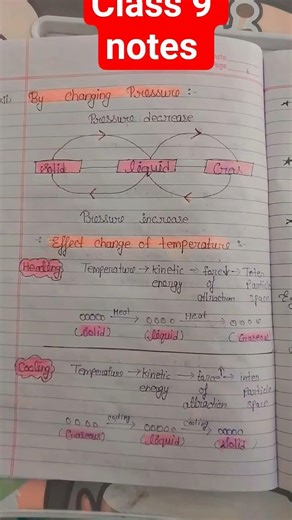 Class 9
notes
By changing Pressure :-
Pressure decrease
Solid Liquid Gas
Pressure increase
: Effect change of temperature :-
Heating Temperature → kinetic → force↓ → Inter
energy of Particle
attraction space
○○○○ Heat → ○ ○ ○ ○ Heat → ○ ○ ○ ○
(Solid) (liquid) (Gaseous)
Cooling Temperature → kinetic → force↑ → inter
energy of Particle
attraction space
○ ○ ○ ○ cooling → ○○○○○ cooling → ○○○○○
(Gaseous) (liquid) (Solid)